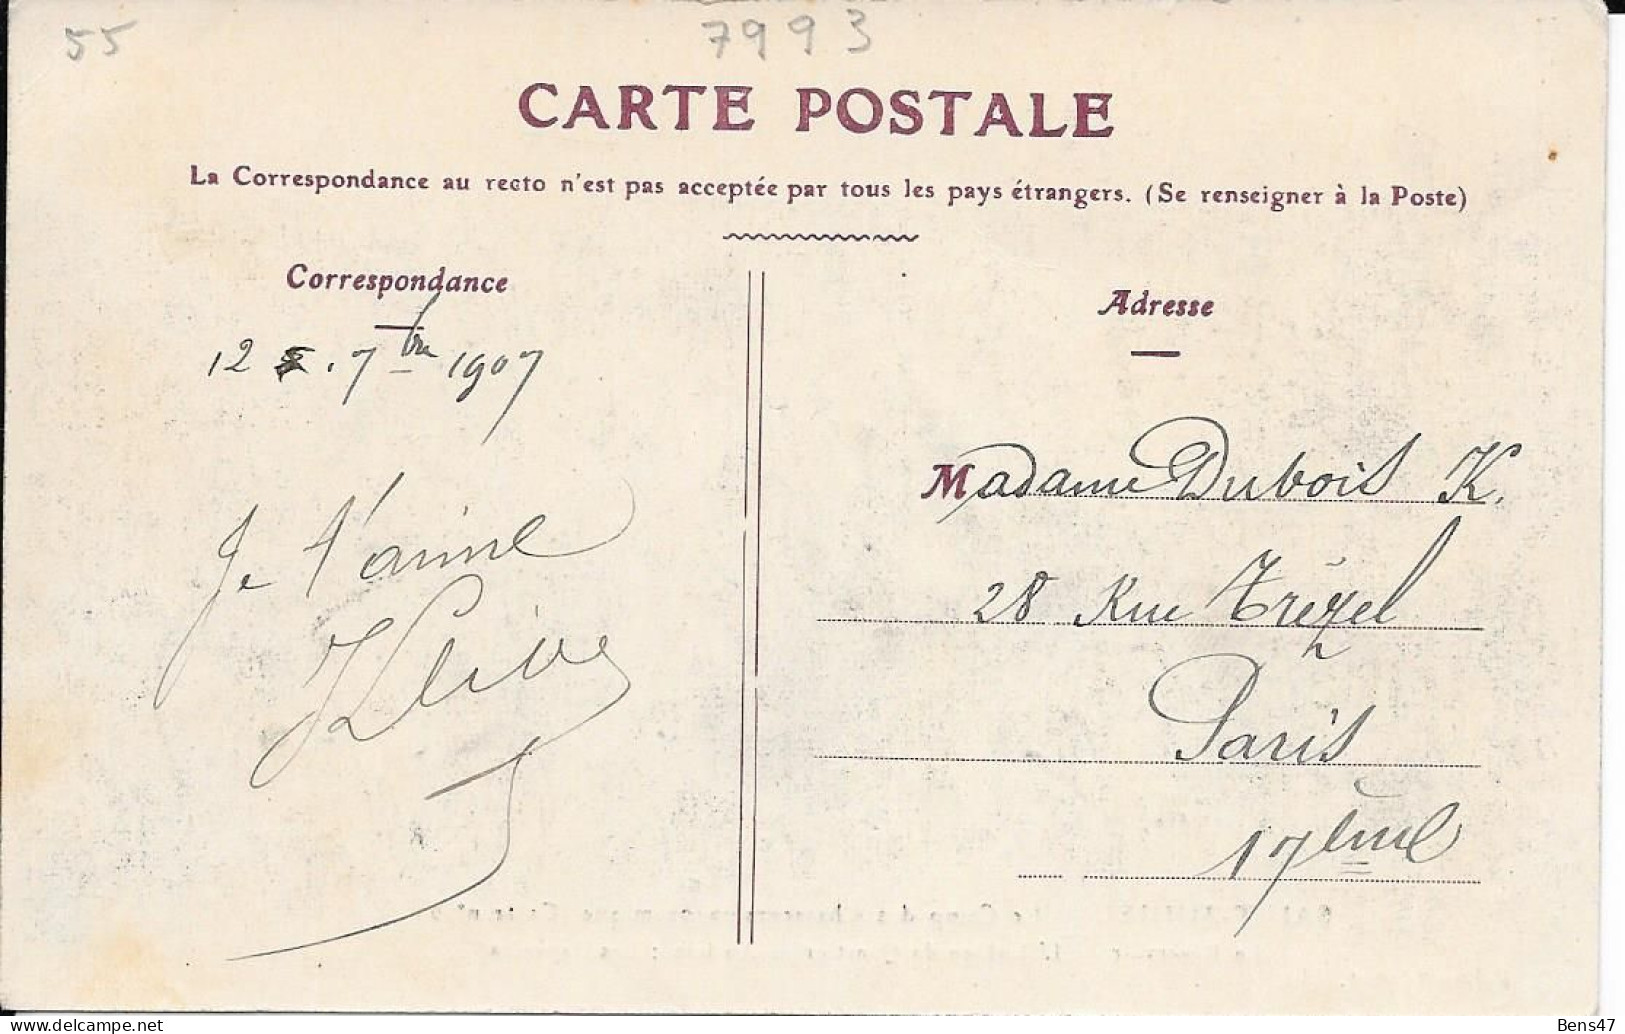 55
7993
CARTE POSTALE
La Correspondance au recto n'est pas acceptée par tous les pays étrangers. (Se renseigner à la Poste)
Correspondance
12 . 7bre 1907
Je t'aime
Adresse
Madame Dubois K.
28 Rue Trézel
Paris
17ème
Bens47